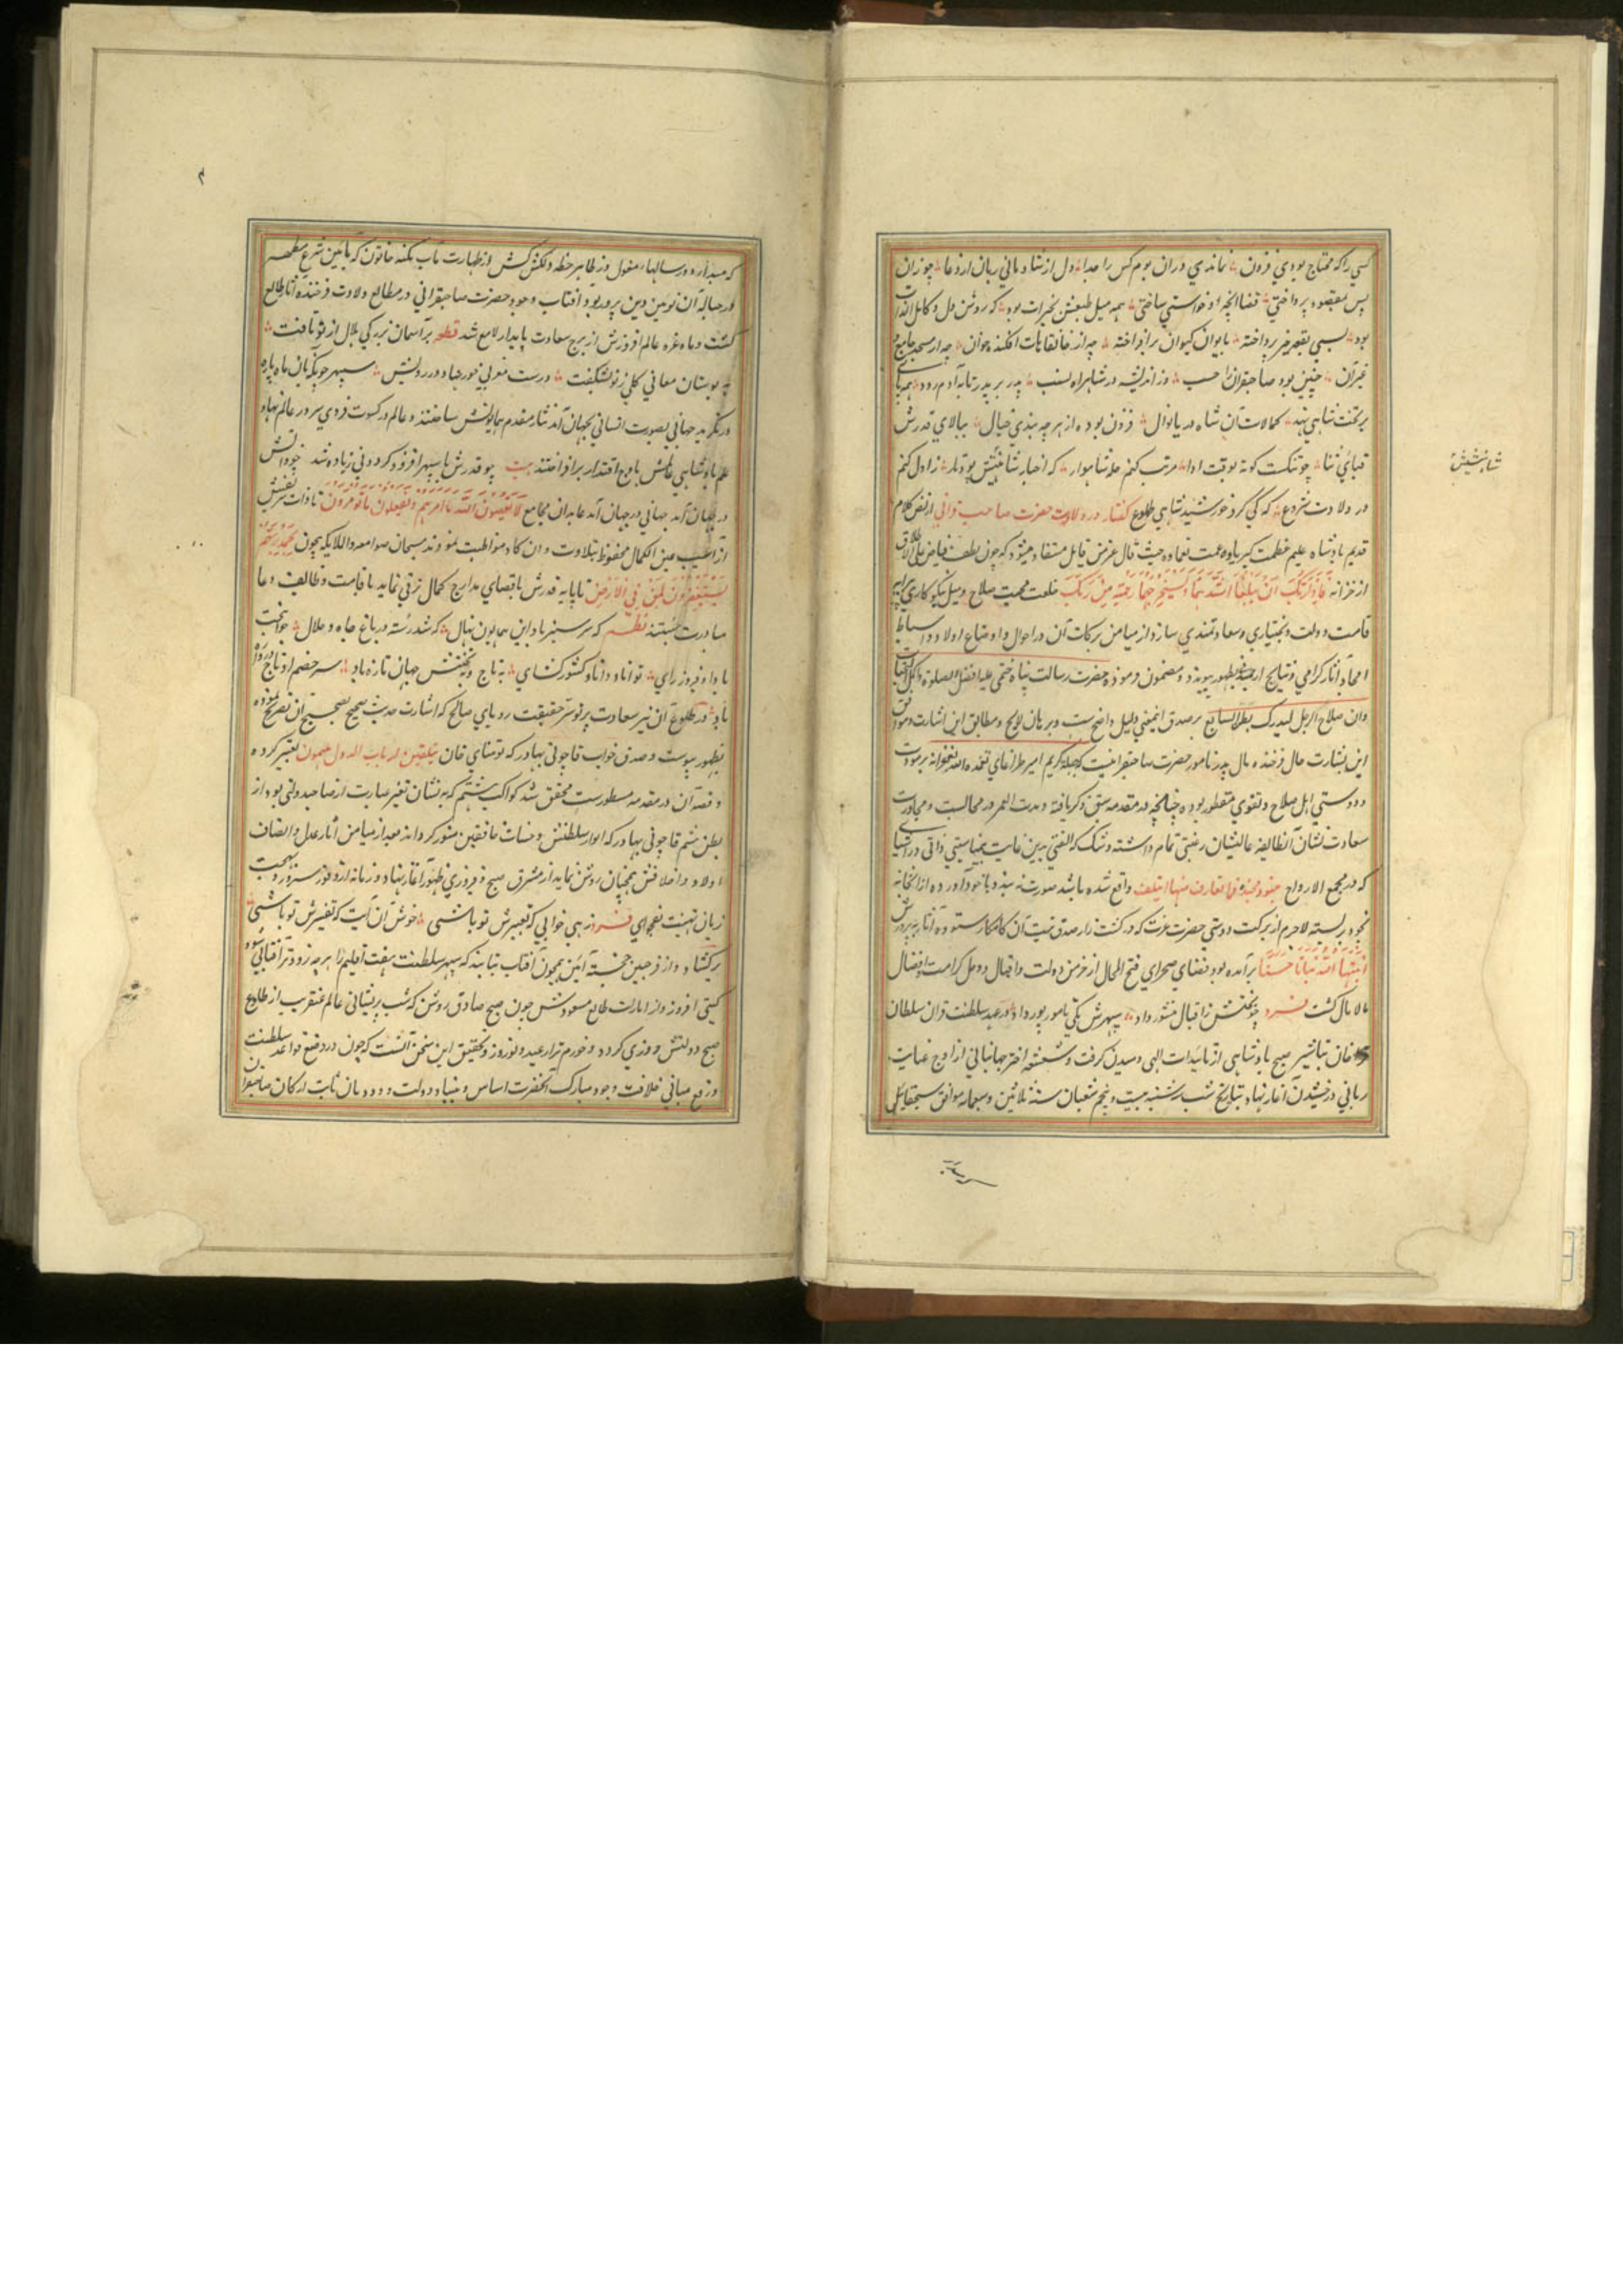 کسی را که محتاج بودی فزون نماندی در آن بوم کس را صدا دل از شادمانی زبان از دعا چو زان
پس بمقصود پرداختی قضا آنچه او خواستی ساختی همه میل طبعش بخیرات بود که روشن دل و کامل الذات
بود بسی بقعه خیر پرداخته بایوان کیوان برافراخته چه از خانقاهات افکنده خوان چه از مسجد جامع و
غیر آن چنین بود صاحبقران را حسب در شاهراه نسب پدر بر پدر تا به آدم رود همه پای
بر تخت شاهی نهد کمالات آن شاه دریا نوال فزون بوده از هر چه بندی خیال ببالای قدرش
قبای ثنا چو تنکست کوته بوقت ادا مرتب کنم حله شاهوار که اخبار شاهیش پود و تار ز اول کنم
در ولادت شروع که کی کرد خورشید شاهی طلوع گفتار در ولادت حضرت صاحب قرانی از نص کلام
قدیم پادشاه علیم عظمت کبریاوه و عمت نعماوه حیث قال عز من قایل مستفاد میشود که چون لطف فیاض علی الاطلاق
از خزانه فاراد ربک ان یبلغا اشدهما ویستخرجا کنزهما رحمة من ربک خلعت محبت صلاح و میل نیکوکاری
قامت دولت و بختیاری وسعادتمندی سازد از میامن برکات آن در احوال و اوضاع اولاد و اسباط
امجاد آثار گرامی و نتایج ارجمند بظهور پیوندد و مضمون فرموده حضرت رسالت پناه ختمی علیه افضل الصلوة و اکمل التحیات
وان صلاح الرجل لیدرک بطن السابع بر صدق این معنی دلیل واضحست و برهان لایح و مطابق این اشارت و موافق
این بشارت حال فرخنده مال پدر نامور حضرت صاحبقرانیست که جبله کریم امیر طراغای تغمده الله بغفرانه بر مودت
و دوستی اهل صلاح و تقوی مفطور بوده چنانچه در مقدمه سبق ذکر یافته و مدت العمر در مجالست و مجاورت
سعادت نشان آن طایفه عالیشان رغبتی تمام داشته و شک که الفتی بدین غایت بی مناسبتی ذاتی و ارتباطی
که در مجمع الارواح جنود مجندة فما تعارف منها ایتلف واقع شده باشد صورت نه بندد با خود آورده از آنجا نه
بخود بر بسته لاجرم از برکت دوستی حضرت عزت که در کشت زار صدق نیت آن کامکار ستوده آثار به پرورش
انبتها الله نباتا حسنا برآمده بود فضای صحرای فتح المجال از خرمن دولت و اقبال و دخل کرامت و افضال
مالامال گشت فرد چو بختش ز اقبال منشور داد سپهرش یکی نامور پور داد در عهد سلطنت قزان سلطان
خان تباشیر صبح پادشاهی از تاییدات الهی دمیدن گرفت و شعشعه اختر جهانبانی از اوج عنایت
ربانی درخشیدن آغاز نهاد بتاریخ شب سه شنبه بیست و پنجم شعبان سنه ثلاثین وسبعمایه موافق سیچقان ئیل
شاهیش
که مبدأ دور سالها مغول در ظاهر خطه دلکش کش از طهارت مآب تکنه خاتون که بآئین شرع مطهر
در حباله آن نویین دین پرور بود آفتاب وجود حضرت صاحبقرانی در مطالع ولادت فرخنده آثار طالع
گشت و ماه غره عالم افروزش از برج سعادت پایدار لامع شد قطعه بر آسمان بزرگی هلال از نو تافت
به بوستان معانی گلی ز نو بشکفت درست مغربی خور نهاد در رویش سپهر چونکه بآن ماه پاره
در نگرید جهانی بصورت انسانی بجهان آمد نثار مقدم همایونش ساختند و عالم در کسوت فردی سر در عالم نهاد
علم پادشاهی عالمش باوج اقتدار برافراختند بیت چو قدرش پا بسپهر افزود گردونی زیاده شد چو ذاتش
در جهان آمد جهانی در جهان آمد عابدان مجامع لا یعصون الله ما امرهم ویفعلون ما یؤمرون تا ذات شریفش
از آسیب عین الکمال محفوظ بتلاوت وان یکاد مواظبت نمودند مسبحان صوامع والملایکه یسبحون بحمد ربهم
ویستغفرون لمن فی الارض تا پایه قدرش باقصای مدارج کمال ترقی نماید باقامت وظایف دعا
مبادرت جستند نظم که سرسبز باد این همایون نهال که شد رسته در باغ جاه و جلال جوانبخت
باد او فیروز رای توانا و دانا و کشور گشای به تاج و به تختش جهان تازه باد سر خصم او تاج دروازه
باد در طلوع آن نیر سعادت پرتو سر حقیقت رویای صالح که اشارت حدیث صحیح بصحیح آن تصریح نموده
بظهور پیوست و صدق خواب قاچولی بهادر که تومنای خان بتلقین ارباب الدول ملهمون تعبیر کرده
و قصه آن در مقدمه مسطورست محقق شد کواکب هشتم که به نشان تعبیر عبارت از صاحب دولتی بود از
بطن هشتم قاچولی بهادر که انوار سلطنتش و حسنات خافقین منور گرداند و بعد از میامن آثار عدل و انصاف
اولاد و اخلافش همچنان روشن نماید از مشرق صبح فیروزی ظهور آغاز نهاد و زمانه از وفور سرور و بهجت
زبان تهنیت بفحوای فرد زهی خوابی که تعبیرش تو باشی خوش آن آیت که تفسیرش تو باشی
برگشاد و از فر جبین خجسته آئین همچون آفتاب تابنده که سپهر سلطنت هفت اقلیم را هر چه زودتر آفتابی شود
گیتی افروز و از امارت طالع مسعودش چون صبح صادق روشن که شب پریشانی عالم عنقریب از طلوع
صبح دولتش روزی گردد و خورم تر از عید و نوروز و تحقیق این سخن آنست که چون در وضع قواعد سلطنت
و رفع مبانی خلافت وجود مبارک آنحضرت اساس و بنیاد دولت و دودمان ثابت ارکان صاحبقران